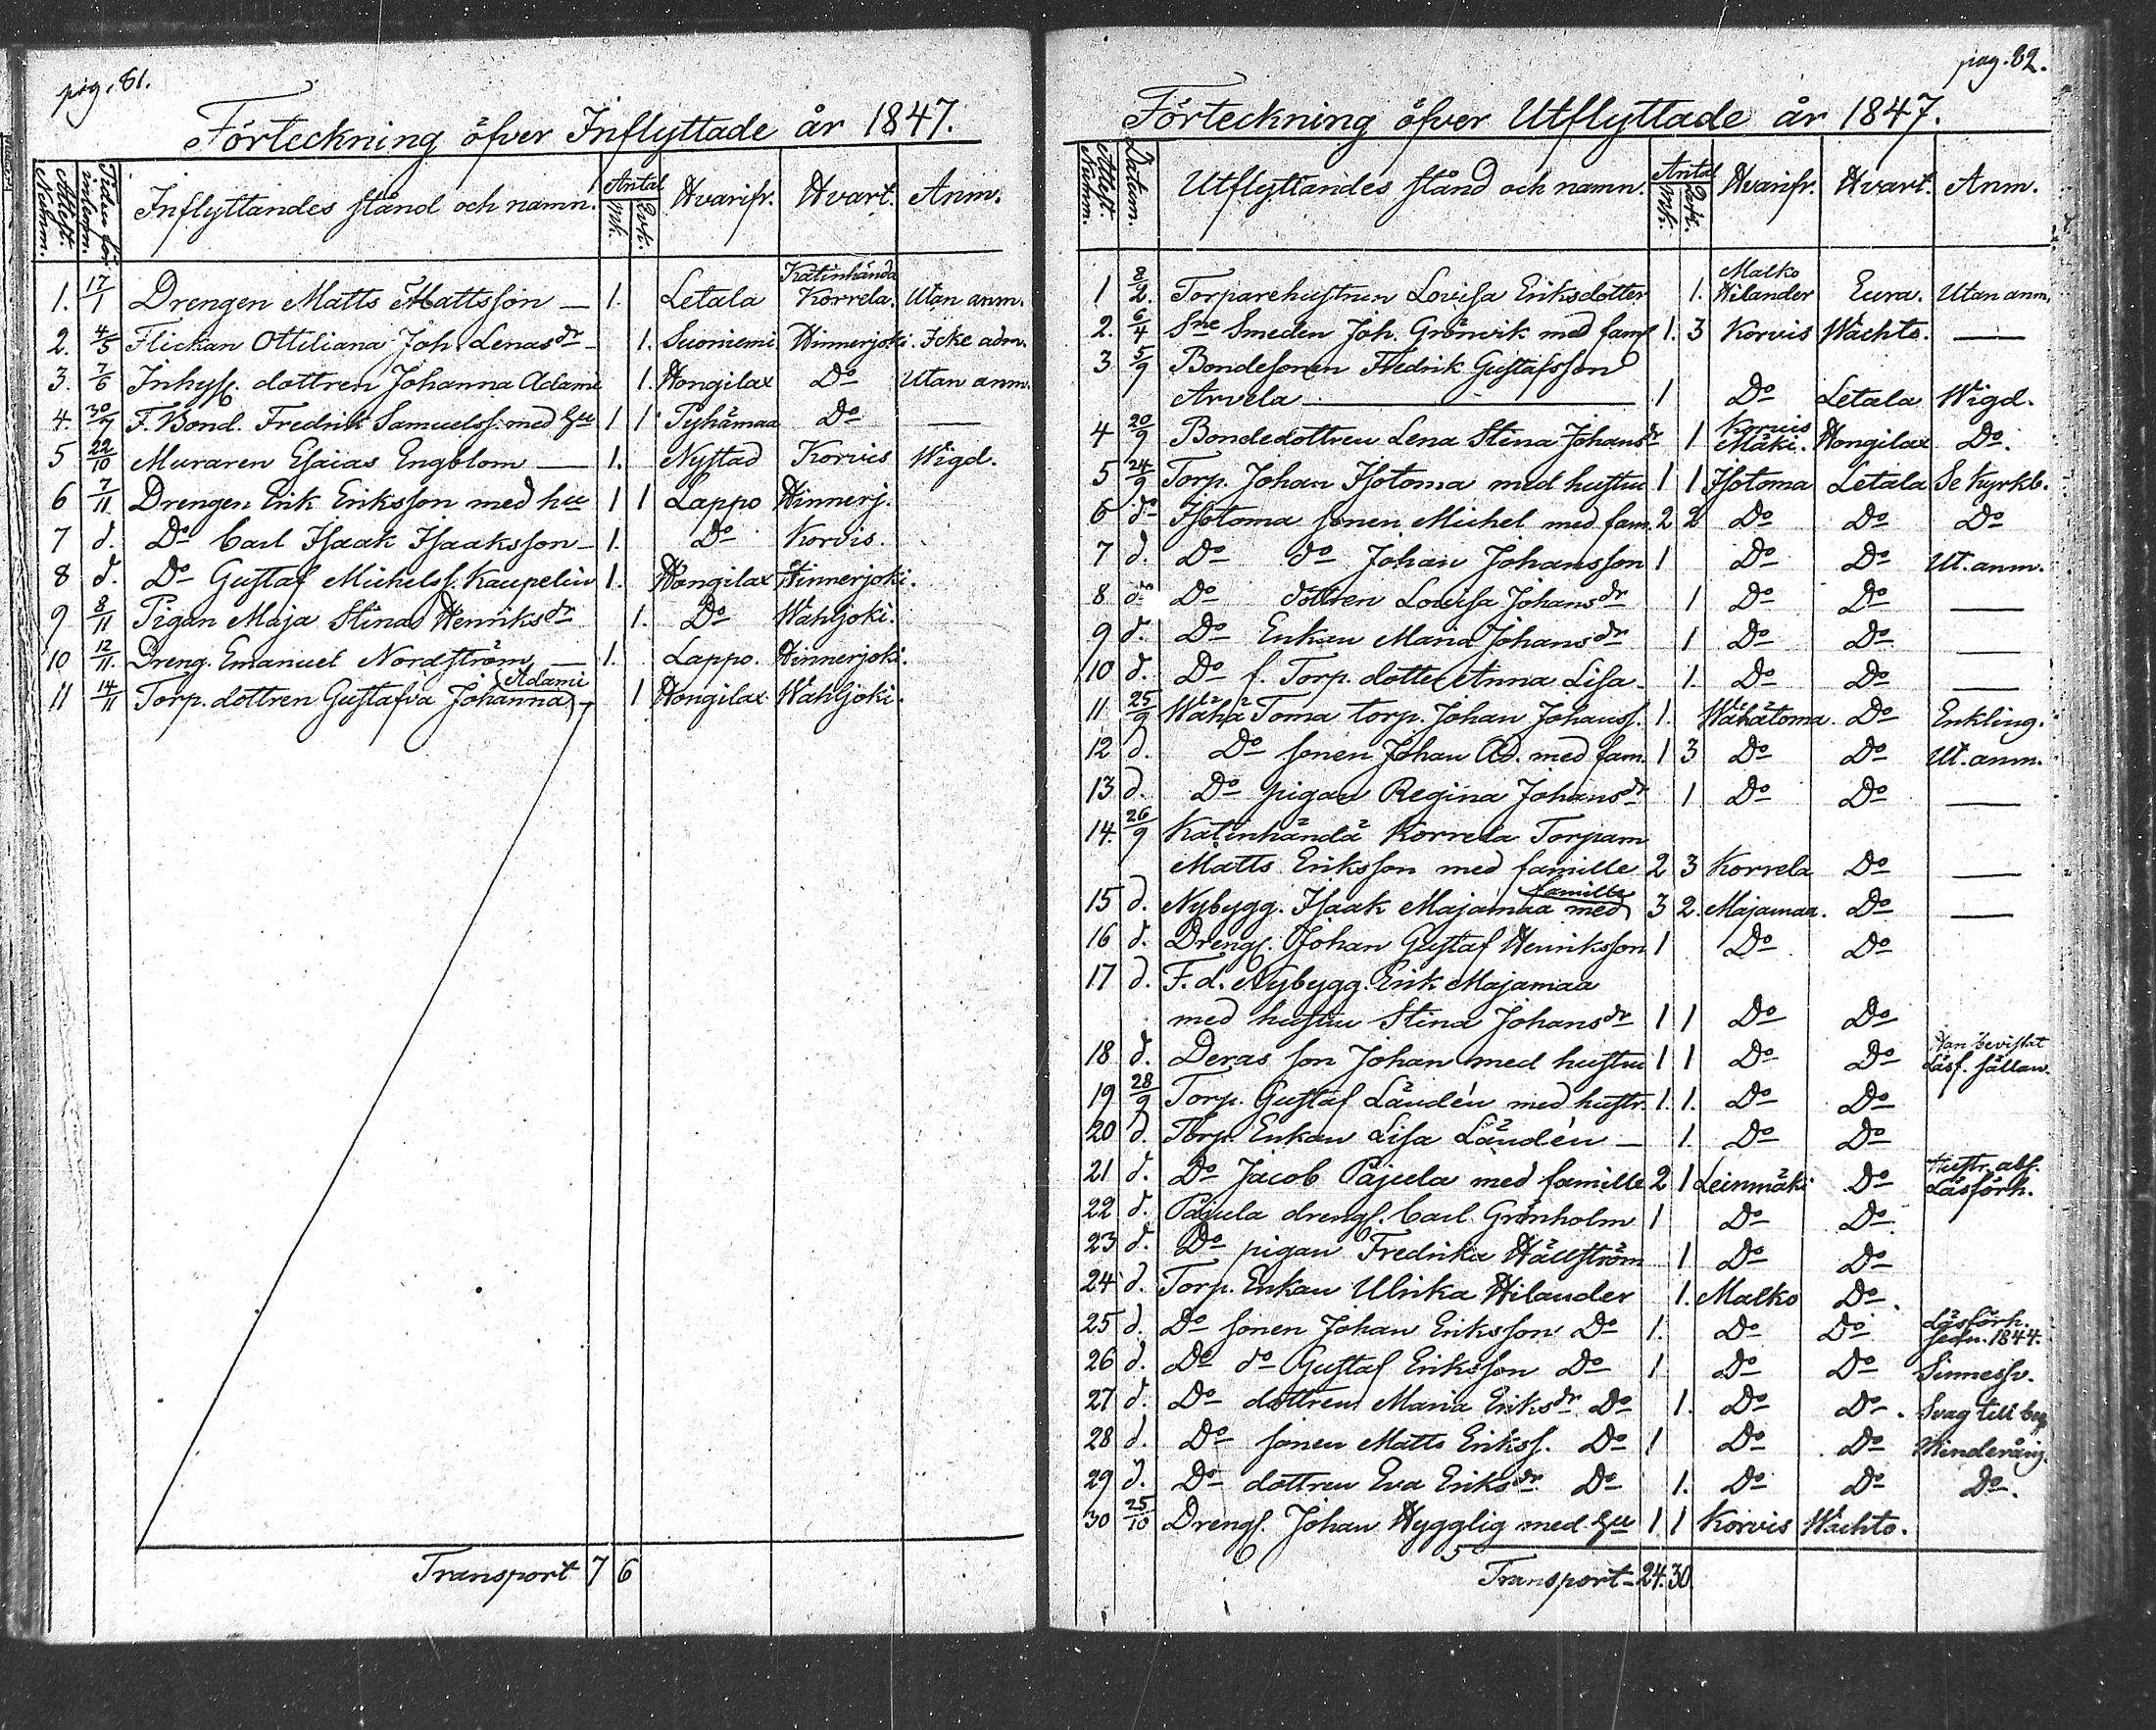 pag. 81.
Förteckning öfver Inflyttade år 1847.
Attest. Numm. Tiden för inlemn. Inflyttandes stånd och namn. Antal Mk. Qvk. Hvarifr. Hvart. Anm.
Katinhändä
1. 17/1 Drengen Matts Mattsson — 1. Letala Korrela. Utan anm.
2. 4/5 Flickan Ottiliana Joh. Lenasdr — 1. Suoniemi Hinnerjoki. Icke adm.
3. 7/6 Inhyss. dottren Johanna Adami 1. Hongilax Do Utan anm.
4. 30/7 F. Bond. Fredrik Samuelss. med hu 1 1 Pyhämaa Do —
5 22/10 Muraren Esaias Engblom — 1. Nystad Korvis Wigd.
6 7/11 Drengen Erik Eriksson med hu 1 1 Lappo Hinnerj.
7 d. Do Carl Isaak Isaaksson — 1. Do Korvis.
8 d. Do Gustaf Michelss. Kaupelin 1. Hongilax Hinnerjoki.
9 8/11 Pigan Maja Stina Henriksdr 1. Do Wahljoki.
10 12/11. Dreng. Emanuel Nordström — 1. Lappo. Hinnerjoki.
Adami
11 14/11 Torp. dottren Gustafva Johanna 1 Hongilax Wahljoki.
Transport 7 6
pag. 82.
Förteckning öfver Utflyttade år 1847.
Attest. Numm. Datum. Utflyttandes stånd och namn. Antal Mk. Qvk. Hvarifr. Hvart. Anm.
Malko
1 8/2. Torparehustrun Lovisa Eriksdotter 1. Hilander Eura. Utan anm.
2. 6/4 Sne Smeden Joh. Grönvik med fam 1. 3 Korvis Wachto. —
3 5/9 Bondesonen Fredrik Gustafsson
Arvela — 1 Do Letala Wigd.
Korvis
4 20/9 Bondedottren Lena Stina Johansdr 1 Mäki. Hongilax Do.
5 24/9 Torp. Johan Isotoma med hustru 1 1 Isotoma Letala Se kyrkb.
6 do Isotoma sonen Michel med fam. 2 2 Do Do Do
7 d. Do do Johan Johansson 1 Do Do Ut. anm.
8 do Do dottren Lovisa Johansdr 1 Do Do —
9 d. Do Enkan Maria Johansdr 1 Do Do —
10 d. Do f. Torp. dotter Anna Lisa 1. Do Do —
11 25/9 Wähä Toma torp. Johan Johanss. 1. Wähätoma. Do Enkling.
12 d. Do sonen Johan Ad. med fam. 1 3 Do Do Ut. anm.
13 d. Do pigan Regina Johansdr 1 Do Do —
14. 26/9 Katinhändä Korrela Torparn
Matts Eriksson med famille 2 3 Korrela Do —
famille
15 d. Nybygg. Isaak Majamaa med 3 2. Majamaa. Do —
16 d. Drengs. Johan Gustaf Henriksson 1 Do Do
17 d. F. d. Nybygg. Erik Majamaa
med hustru Stina Johansdr 1 1 Do Do
Han bevistat
18 d. Deras son Johan med hustru 1 1 Do Do Läsf. sällan.
19 28/9 Torp. Gustaf Ländén med hustr. 1. 1. Do Do
20 d. Torp. Enkan Lisa Ländén — 1. Do Do
Hustr. abs.
21 d. Do Jacob Pajula med famille 2 1 Leinmäki Do Läsförh.
22 d. Pajula drengs. Carl Grönholm 1 Do Do
23 d. Do pigan Fredrika Hällström 1 Do Do
24 d. Torp. Enkan Ulrika Hilander 1. Malko Do.
Läsförh.
25 d. Do sonen Johan Eriksson Do 1. Do Do sedn. 1844.
26 d. Do do Gustaf Eriksson Do 1 Do Do Sinnessv.
27 d. Do dottren Maria Eriksdr Do 1. Do Do. Svag till beg.
28 d. Do sonen Matts Erikss. Do 1 Do Do Minderårig.
29 d. Do dottren Eva Eriksdr Do 1. Do Do Do.
30 25/10 Drengs. Johan Hygglig med hu 1 1 Korvis Wachto.
Transport 24. 30.